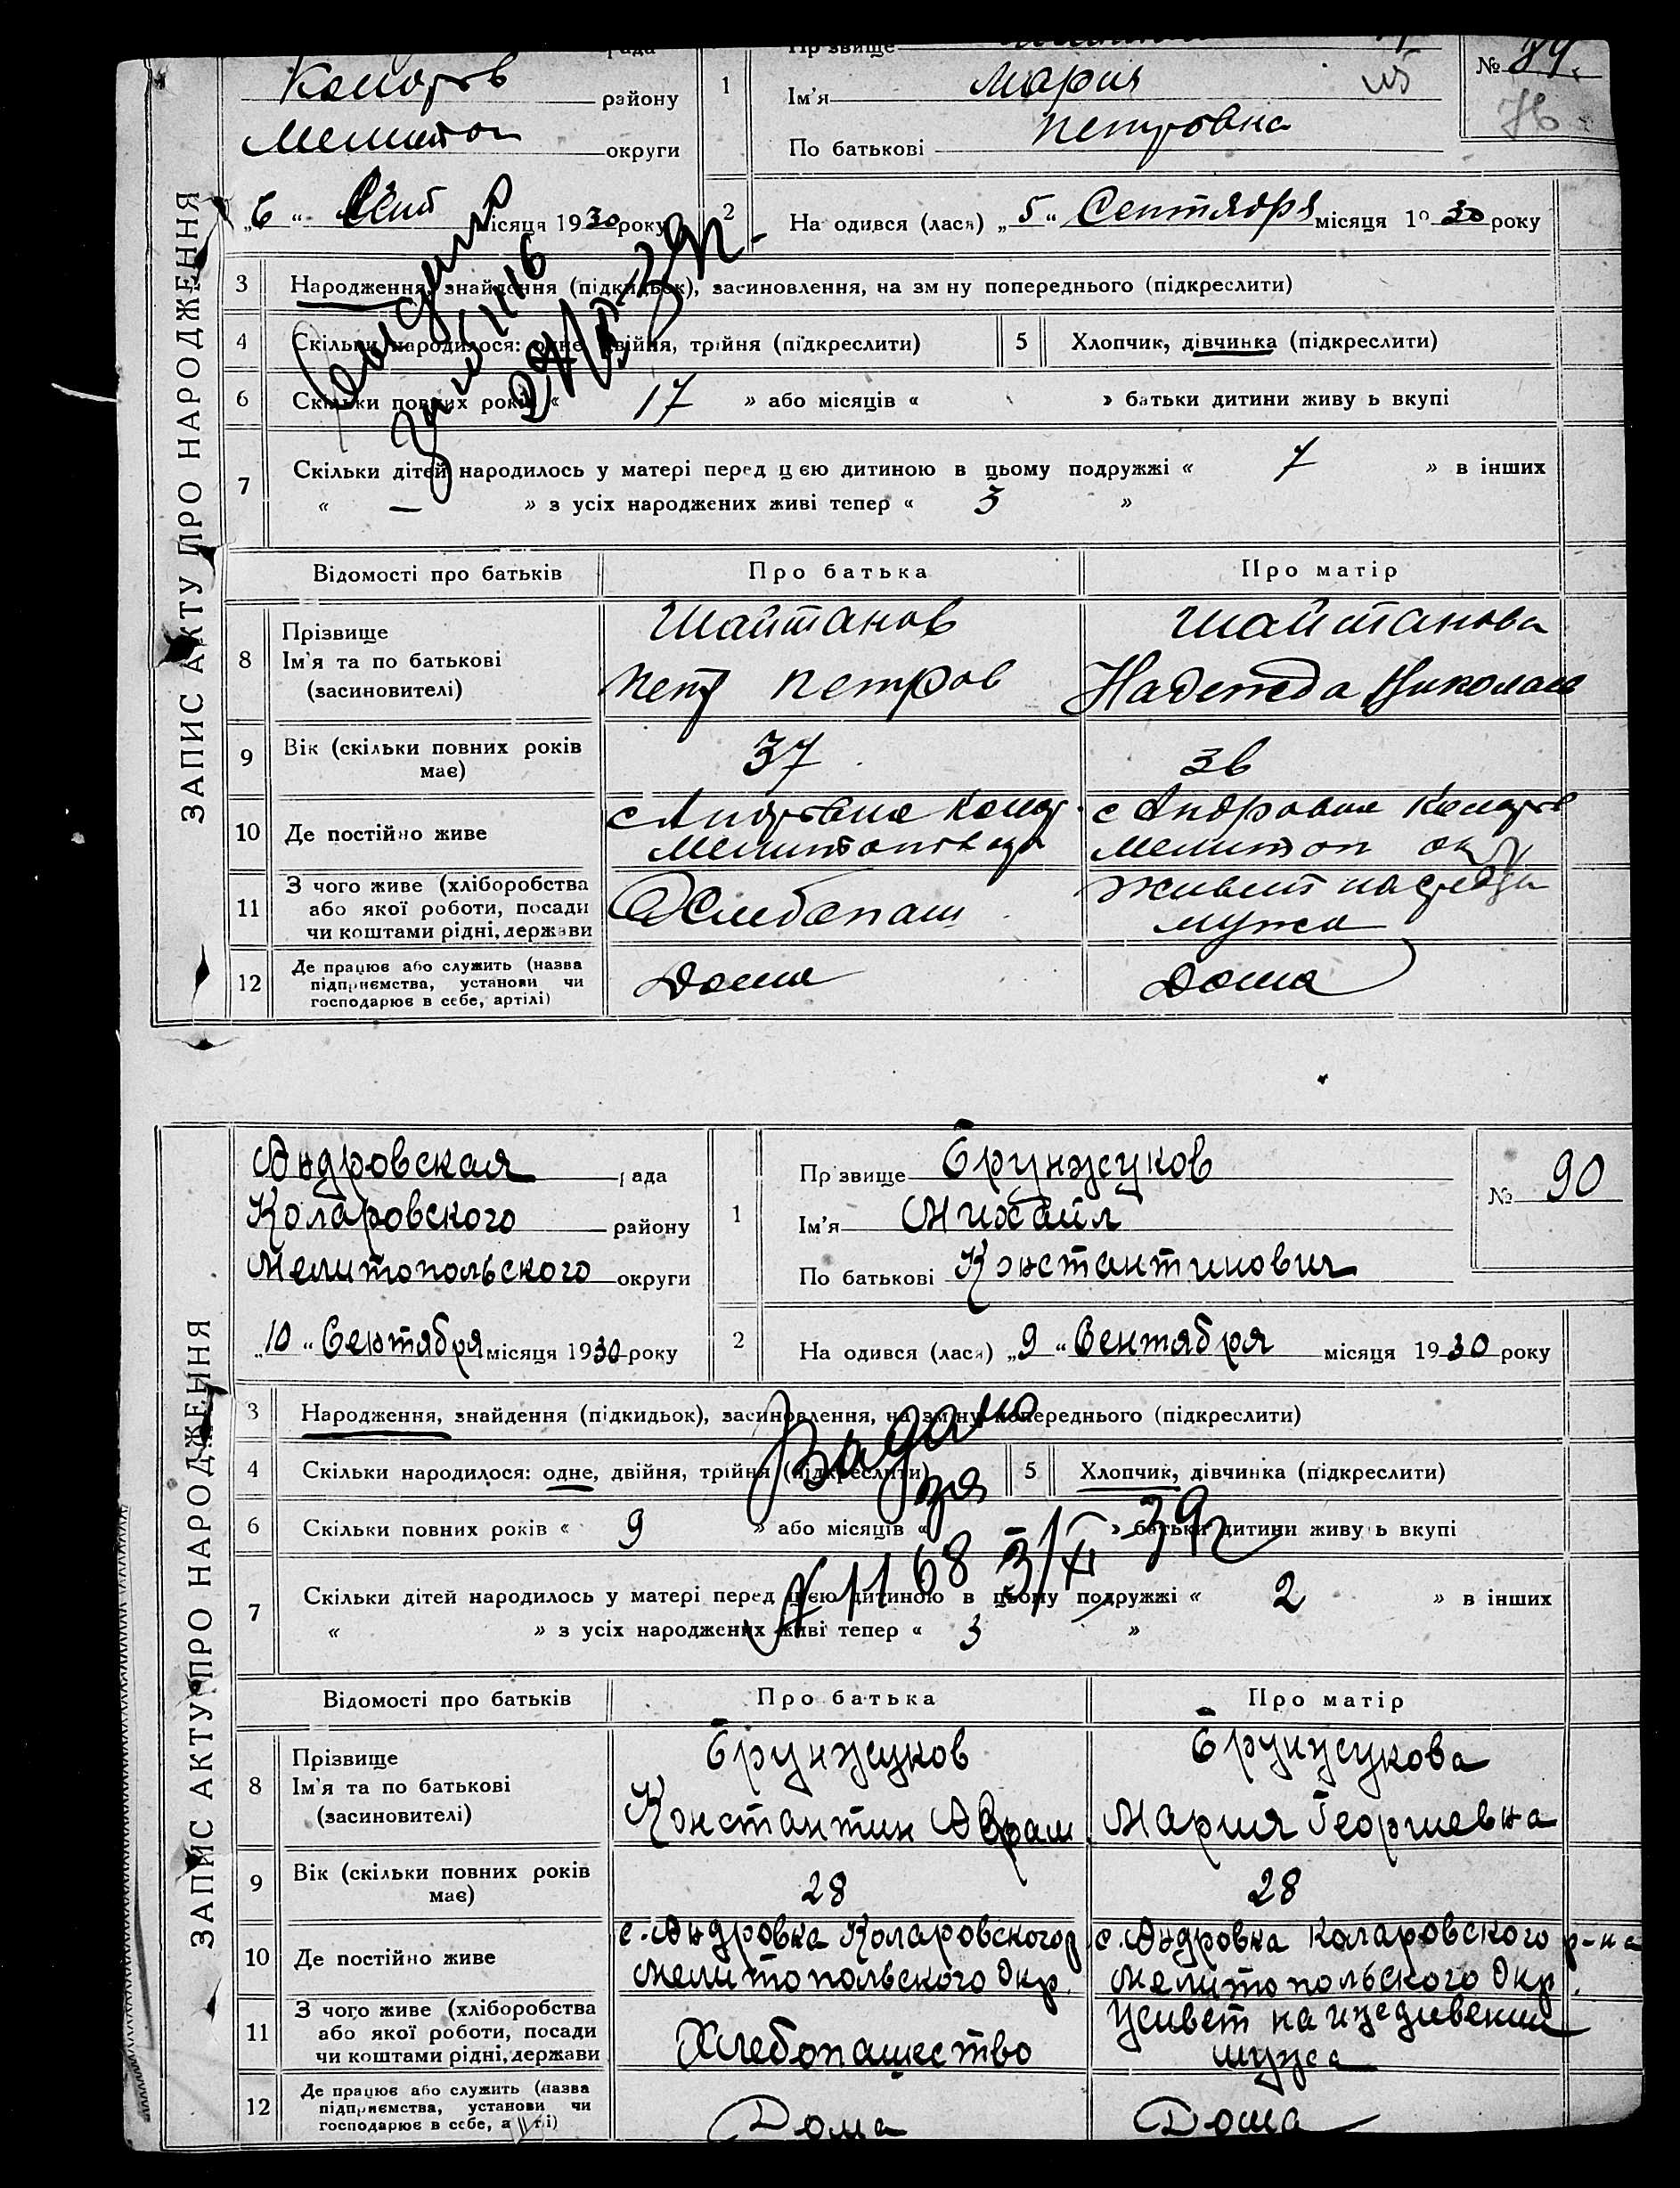 района району
Мелитоп округи
„6“ Сент місяця 1930 року
ЗАПИС АКТУ ПРО НАРОДЖЕННЯ
1
Прізвище
Ім'я Мария
По батькові Петровна
№ 89
2 На одився (лася) „5“ Сентября місяця 1930 року
3 Народження, знайдення (підкидьок), засиновлення, на зм ну попереднього (підкреслити)
4 Скільки народилося: одне, двійня, трійня (підкреслити)
5 Хлопчик, дівчинка (підкреслити)
6 Скільки повних років « 17 » або місяців « » батьки дитини живу ь вкупі
7 Скільки дітей народилось у матері перед цією дитиною в цьому подружжі « 7 » в інших
« — » з усіх народжених живі тепер « 3 »
Відомості про батьків Про батька Про матір
8 Прізвище
Ім'я та по батькові
(засиновителі)
Шайтанов
Петр Петров
Шайтанова
Надежда Николаев
9 Вік (скільки повних років має)
37
36
10 Де постійно живе
11 З чого живе (хліборобства
або якої роботи, посади
чи коштами рідні, держави
Хлебопаш
Живет на средст
мужа
12 Де працює або служить (назва
підприємства, установи чи
господарює в себе, артілі)
Дома
Дома
ЗАПИС АКТУ ПРО НАРОДЖЕННЯ
Андровская рада
Коларовского району
Мелитопольского округи
„10“ Сентября місяця 1930 року
1
Пр звище Брунжуков
Ім'я Михаил
По батькові Константинович
№ 90
2 На одився (лася) „9“ Сентября місяця 1930 року
3 Народження, знайдення (підкидьок), засиновлення, на зм ну попереднього (підкреслити)
4 Скільки народилося: одне, двійня, трійня (підкреслити)
5 Хлопчик, дівчинка (підкреслити)
6 Скільки повних років « 9 » або місяців « » батьки дитини живу ь вкупі
7 Скільки дітей народилось у матері перед цією дитиною в цьому подружжі « 2 » в інших
« » з усіх народжених живі тепер « 3 »
№ 1168 3/XI 39г
Відомості про батьків Про батька Про матір
8 Прізвище
Ім'я та по батькові
(засиновителі)
Брунжуков
Константин Аврам.
Брунжукова
Мария Георгиевна
9 Вік (скільки повних років має)
28
28
10 Де постійно живе
с. Андровка Коларовского р
Мелитопольского Окр.
с. Андровка Коларовского р-на
Мелитопольского Окр.
11 З чого живе (хліборобства
або якої роботи, посади
чи коштами рідні, держави
Хлебопашество
Живет на иждивении
мужа
12 Де працює або служить (назва
підприємства, установи чи
господарює в себе, артілі)
Дома
Дома